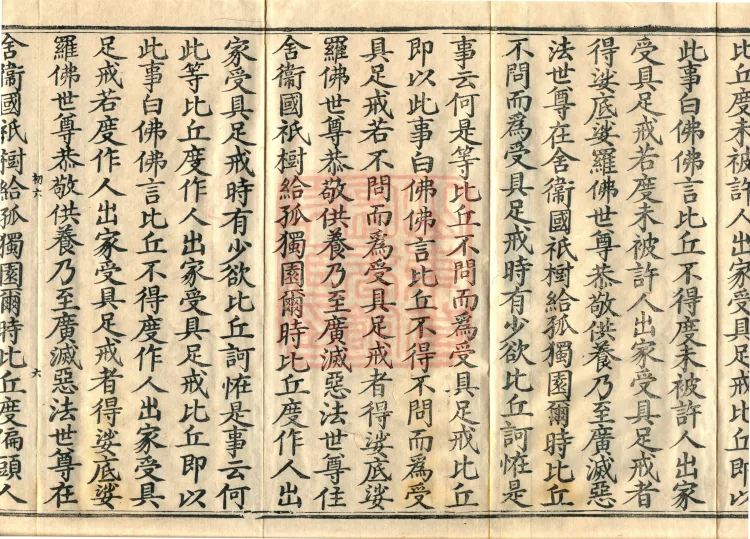 比丘度未被許人出家受具足戒比丘即以
此事白佛佛言比丘不得度未被許人出家
受具足戒若度未被許人出家受具足戒者
得娑底娑羅佛世尊恭敬供養乃至廣滅惡
法世尊在舍衞國祇樹給孤獨園爾時比丘
不問而爲受具足戒時有少欲比丘訶恠是
事云何是等比丘不問而爲受具足戒比丘
即以此事白佛佛言比丘不得不問而爲受
具足戒若不問而爲受具足戒者得娑底娑
羅佛世尊恭敬供養乃至廣滅惡法世尊住
舍衞國祇樹給孤獨園爾時比丘度作人出
家受具足戒時有少欲比丘訶恠是事云何
此等比丘度作人出家受具足戒比丘即以
此事白佛佛言比丘不得度作人出家受具
足戒若度作人出家受具足戒者得娑底娑
羅佛世尊恭敬供養乃至廣滅惡法世尊在
初六 六
舍衞國祇樹給孤獨園爾時比丘度偏頭人